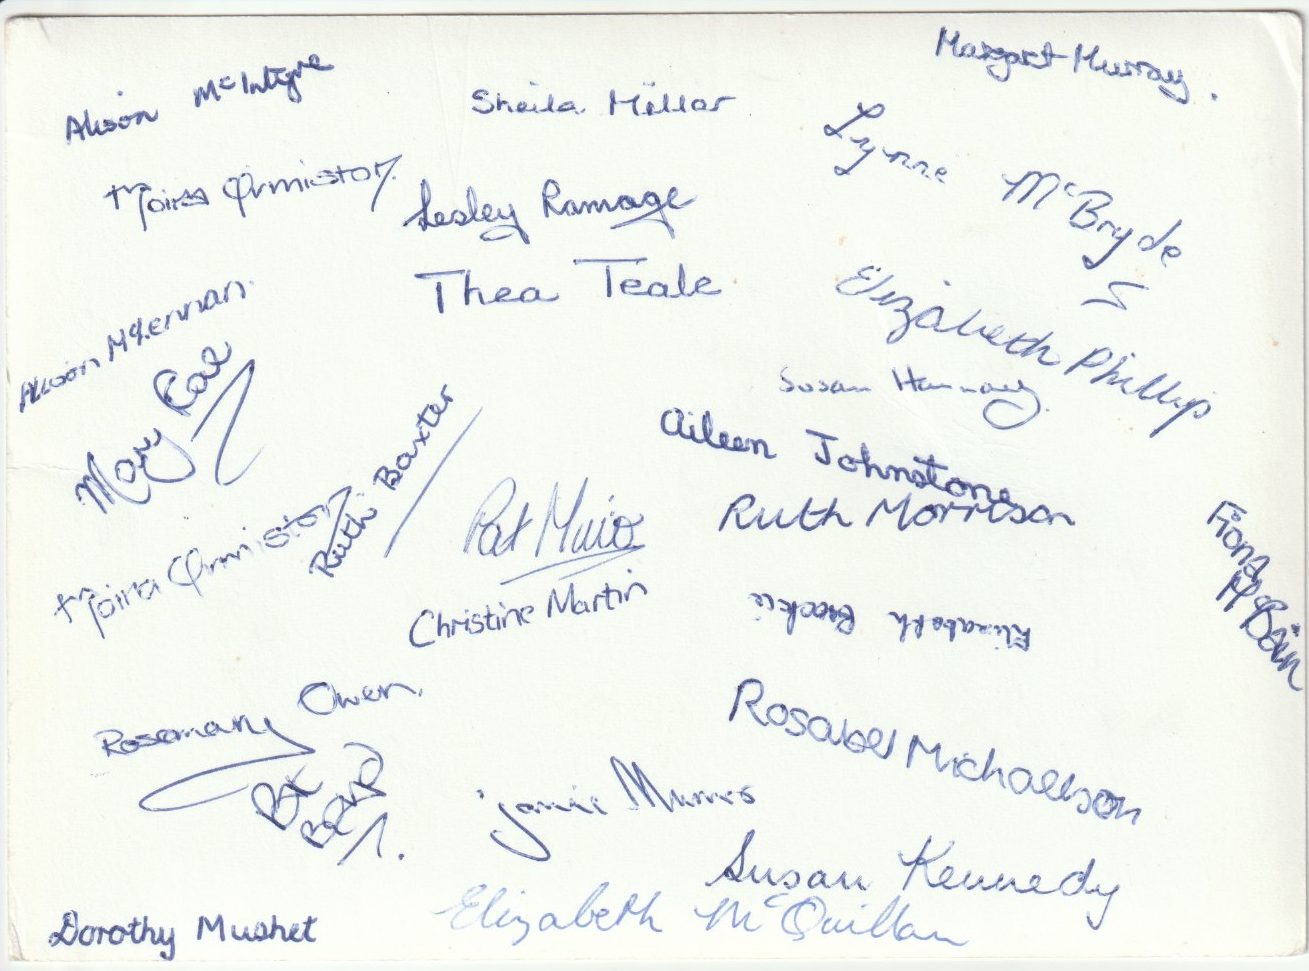 Margaret Murray.
Alison McIntyre
Sheila Millar
Lynne McBryde
Moira Ormiston
Lesley Ramage
Thea Teale
Elizabeth Phillip
Alison McLennan
Susan Hannay
Mary Rae
Aileen Johnstone
Ruth Baxter
Ruth Morrison
Pat Muir
Moira Ormiston
Fiona McBain
Christine Martin
Elizabeth Brockie
Rosemary Owen
Rosabel Michaelson
Janie Munro
Susan Kennedy
Elizabeth McQuillan
Dorothy Mushet